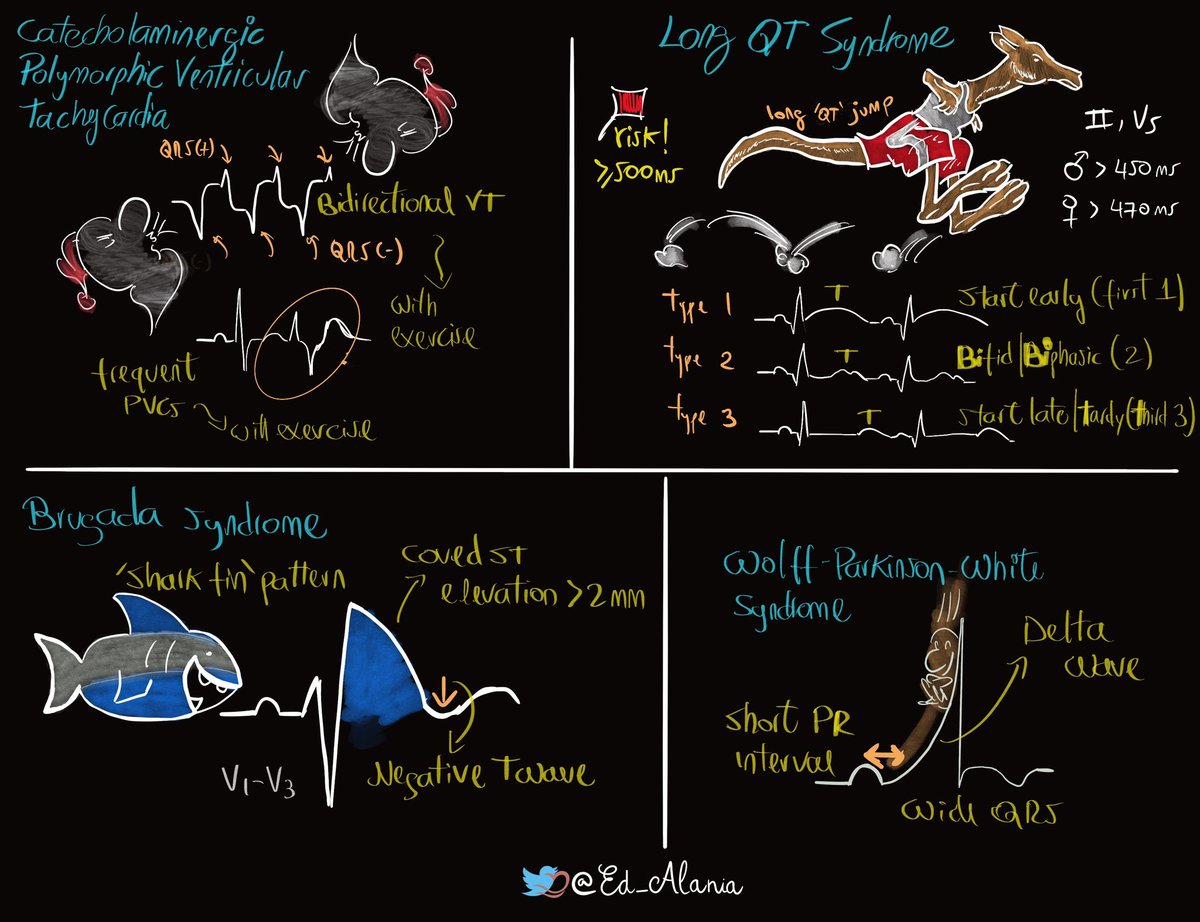 Catecholaminergic
Polymorphic Ventricular
Tachycardia
QRS(+)
Bidirectional VT
QRS(-)
with
exercise
frequent
PVCs
with exercise
Long QT Syndrome
long 'QT' jump
risk!
≥500ms
II, V5
♂ > 450ms
♀ > 470ms
type 1
T
start early (first 1)
type 2
T
Bifid/Biphasic (2)
type 3
T
start late/tardy (third 3)
Brugada Syndrome
'Shark fin' pattern
Coved ST
elevation >2mm
V1-V3
Negative T wave
Wolff-Parkinson-White
Syndrome
Delta
wave
short PR
interval
Wide QRS
@Ed_Alania